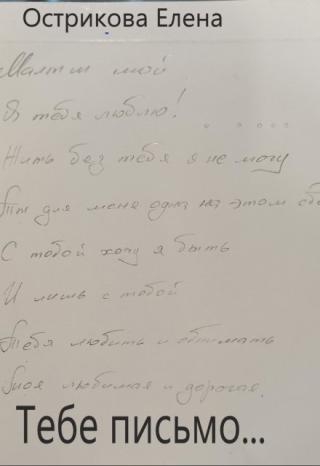 Острикова Елена
мой
Я тебя люблю!
Жить без тебя я не могу
для меня одна на этом
С тобой хочу я быть
И лишь с тобой
Тебя любить и обнимать
любимая и дорогая.
Тебе письмо...